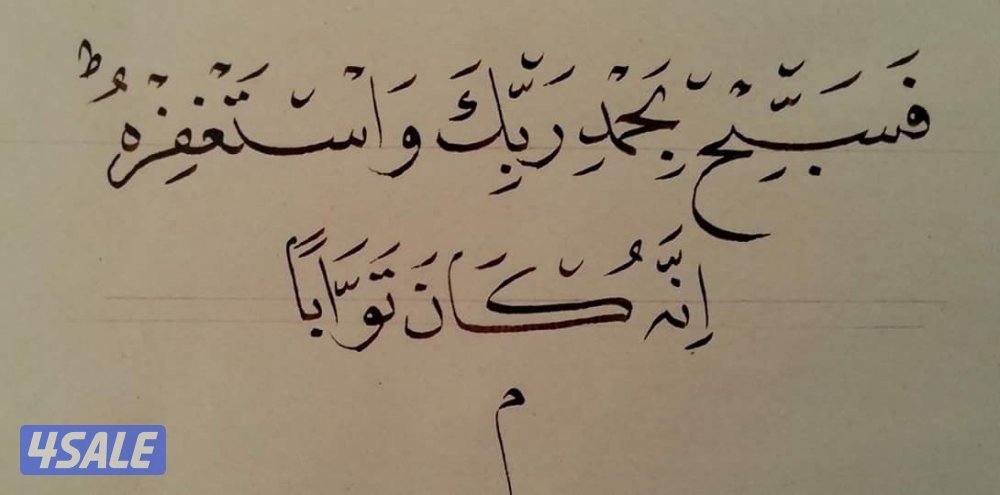 فَسَبِّحْ بِحَمْدِ رَبِّكَ وَاسْتَغْفِرْهُ ۚ
اِنَّهُ كَانَ تَوَّابًا
م
4SALE